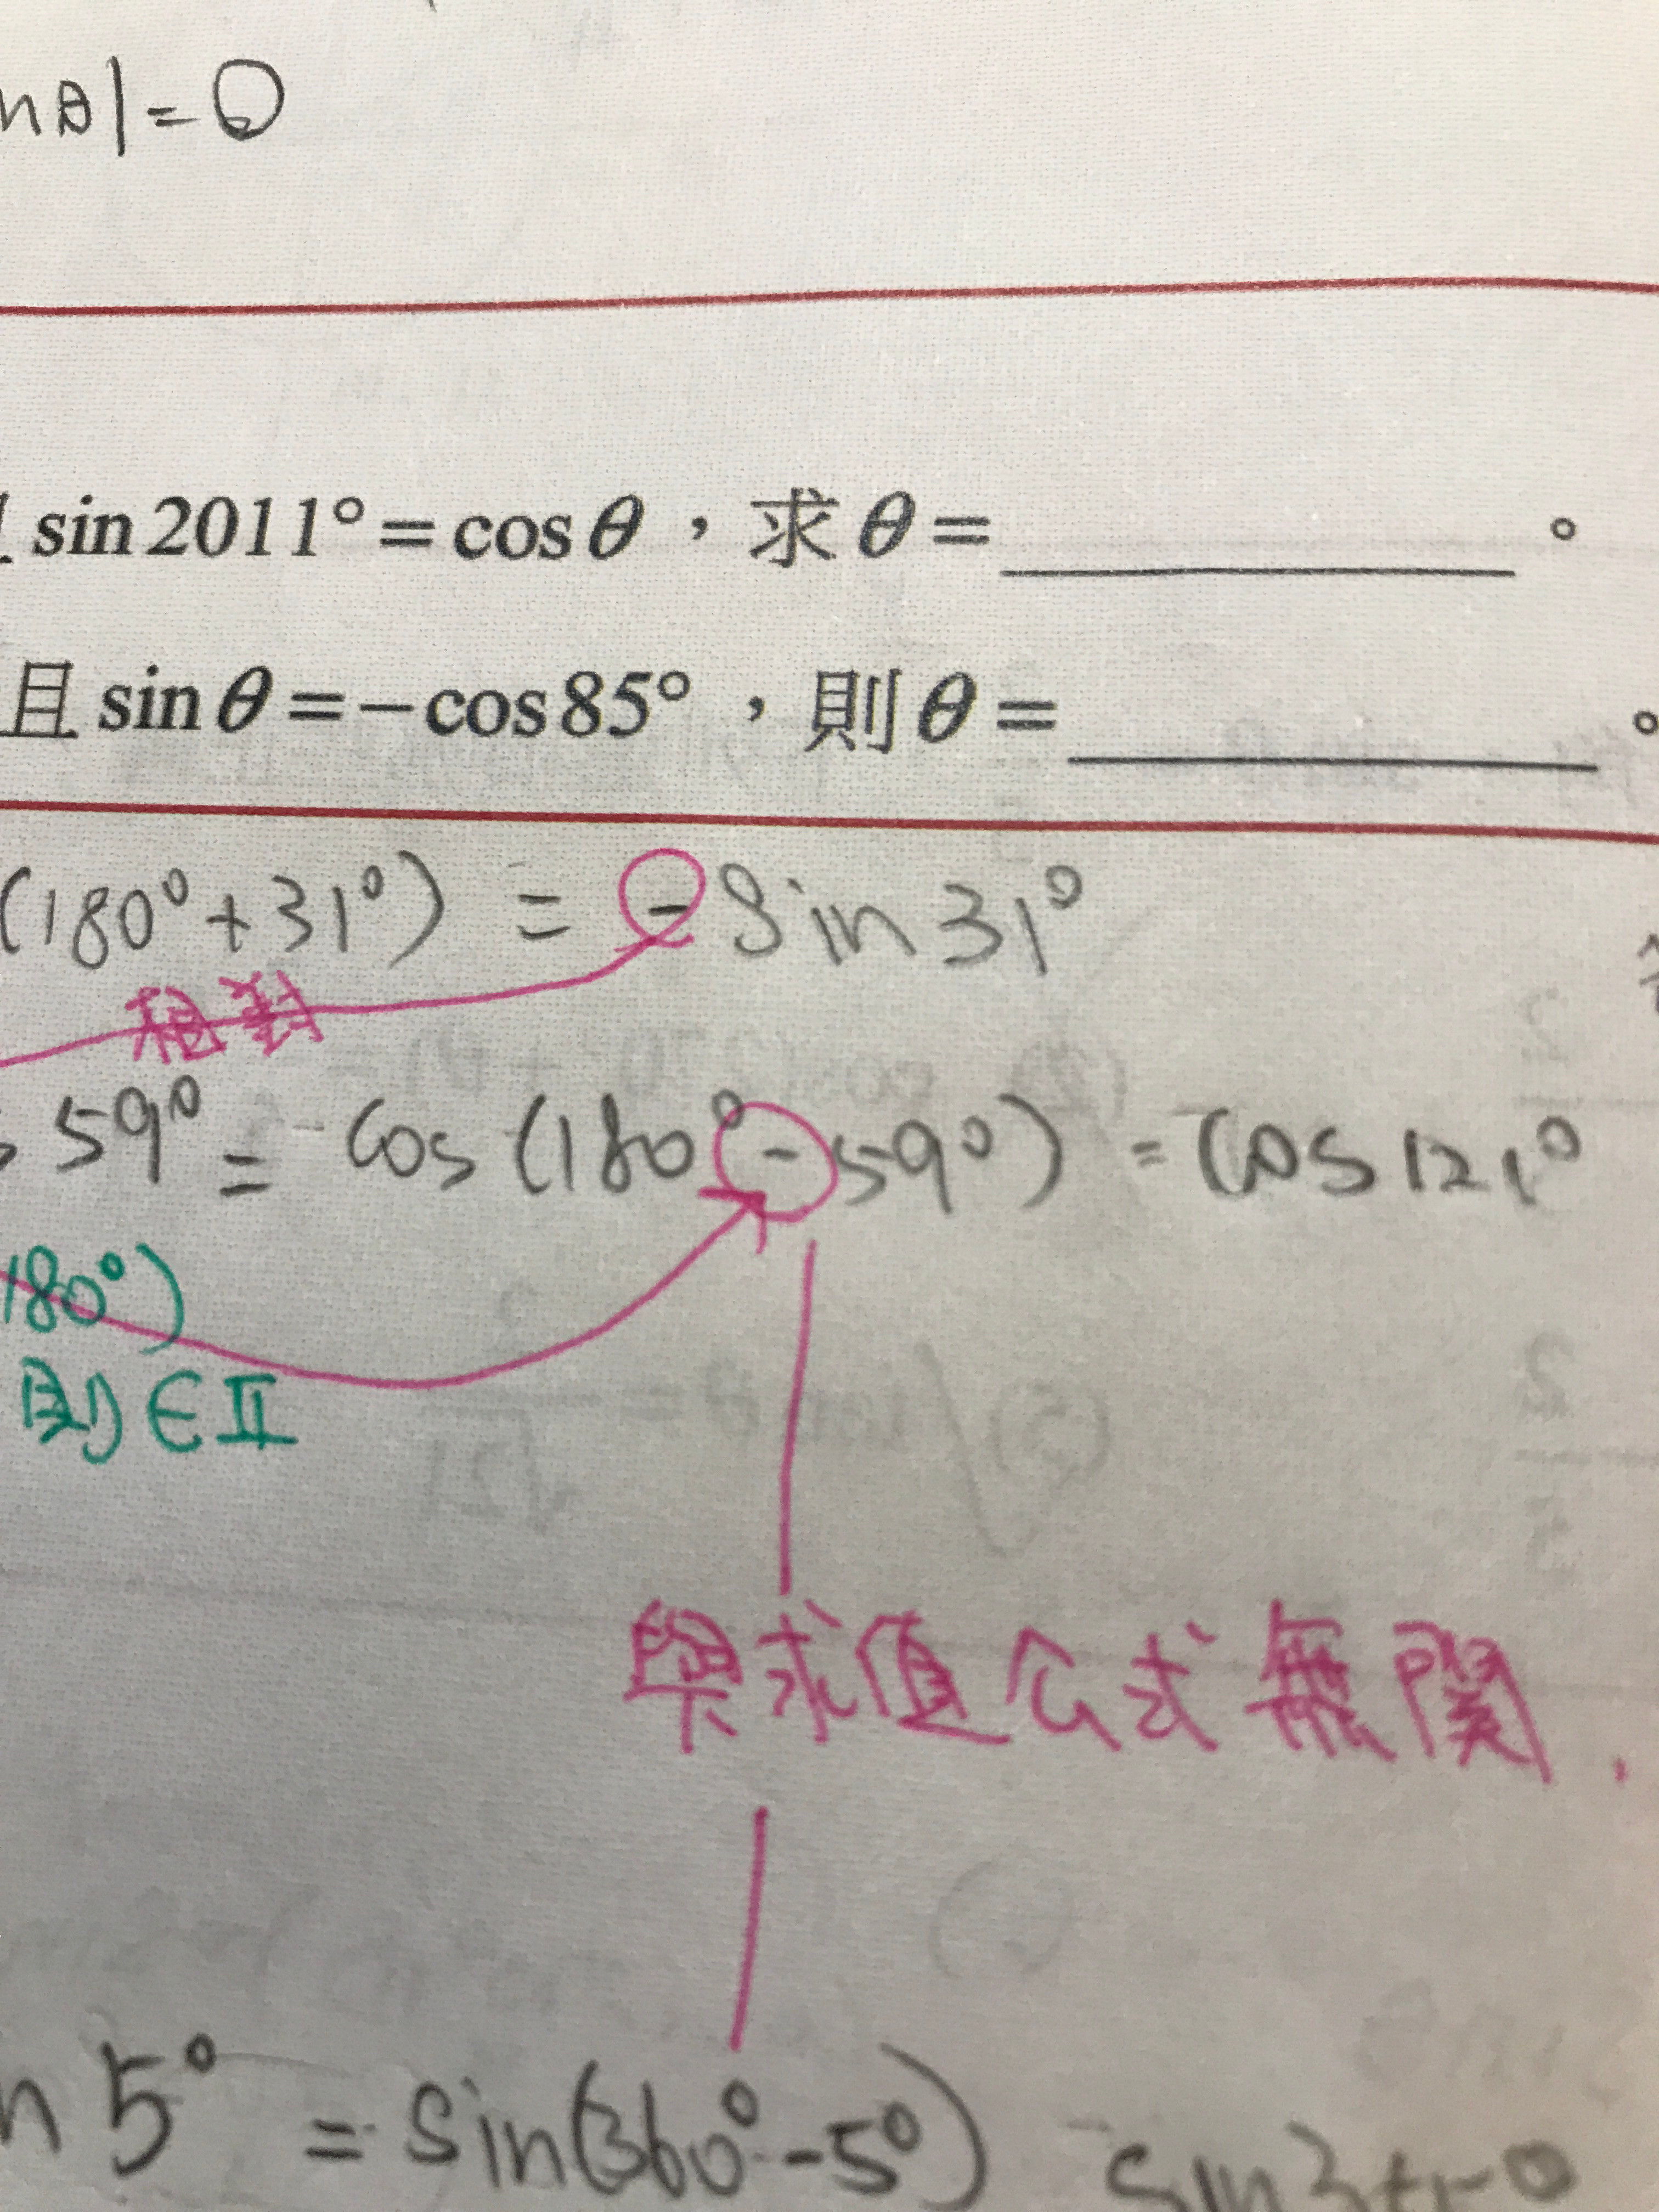 nθ|=0
sin2011°=cosθ,求θ=________。
且sinθ=-cos85°,則θ=________。
(180°+31°) = -Sin31°
相對
59° = cos(180°-59°) = cos121°
180°)
則∈Ⅱ
與求值公式無關.
n5° = Sin(360°-5°)